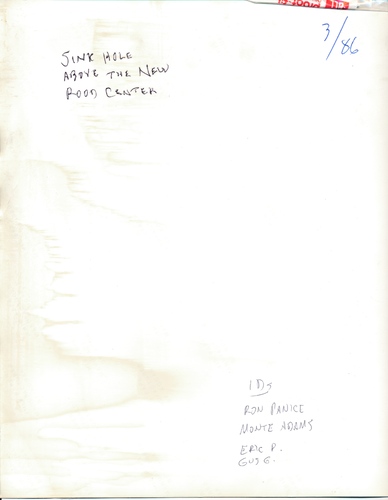 3/86
SINK HOLE
ABOVE THE NEW
ROOD CENTER
IDs
RON PANICE
MONTE ADAMS
ERIC P.
GUS G.